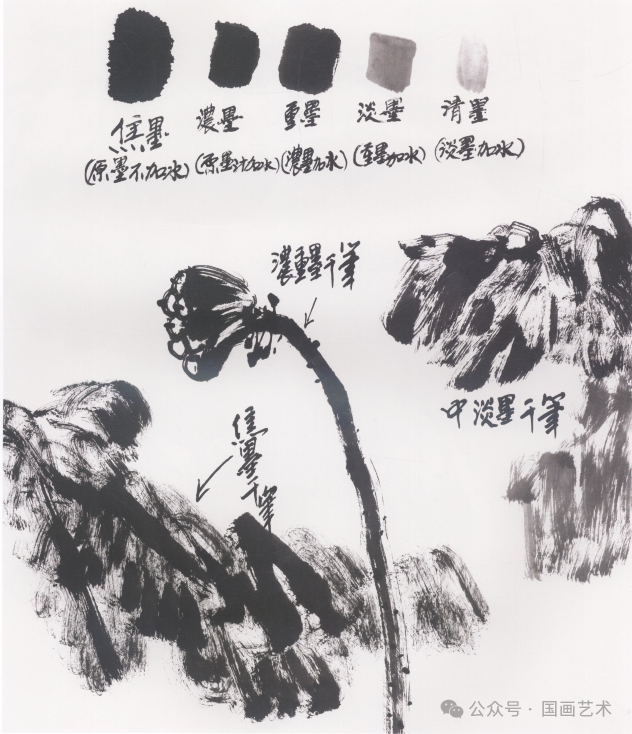 焦墨 濃墨 重墨 淡墨 清墨
(原墨不加水) (原墨汁加水) (濃墨加水) (重墨加水) (淡墨加水)
濃重墨干筆
中淡墨干筆
焦墨干筆
公众号·国画艺术